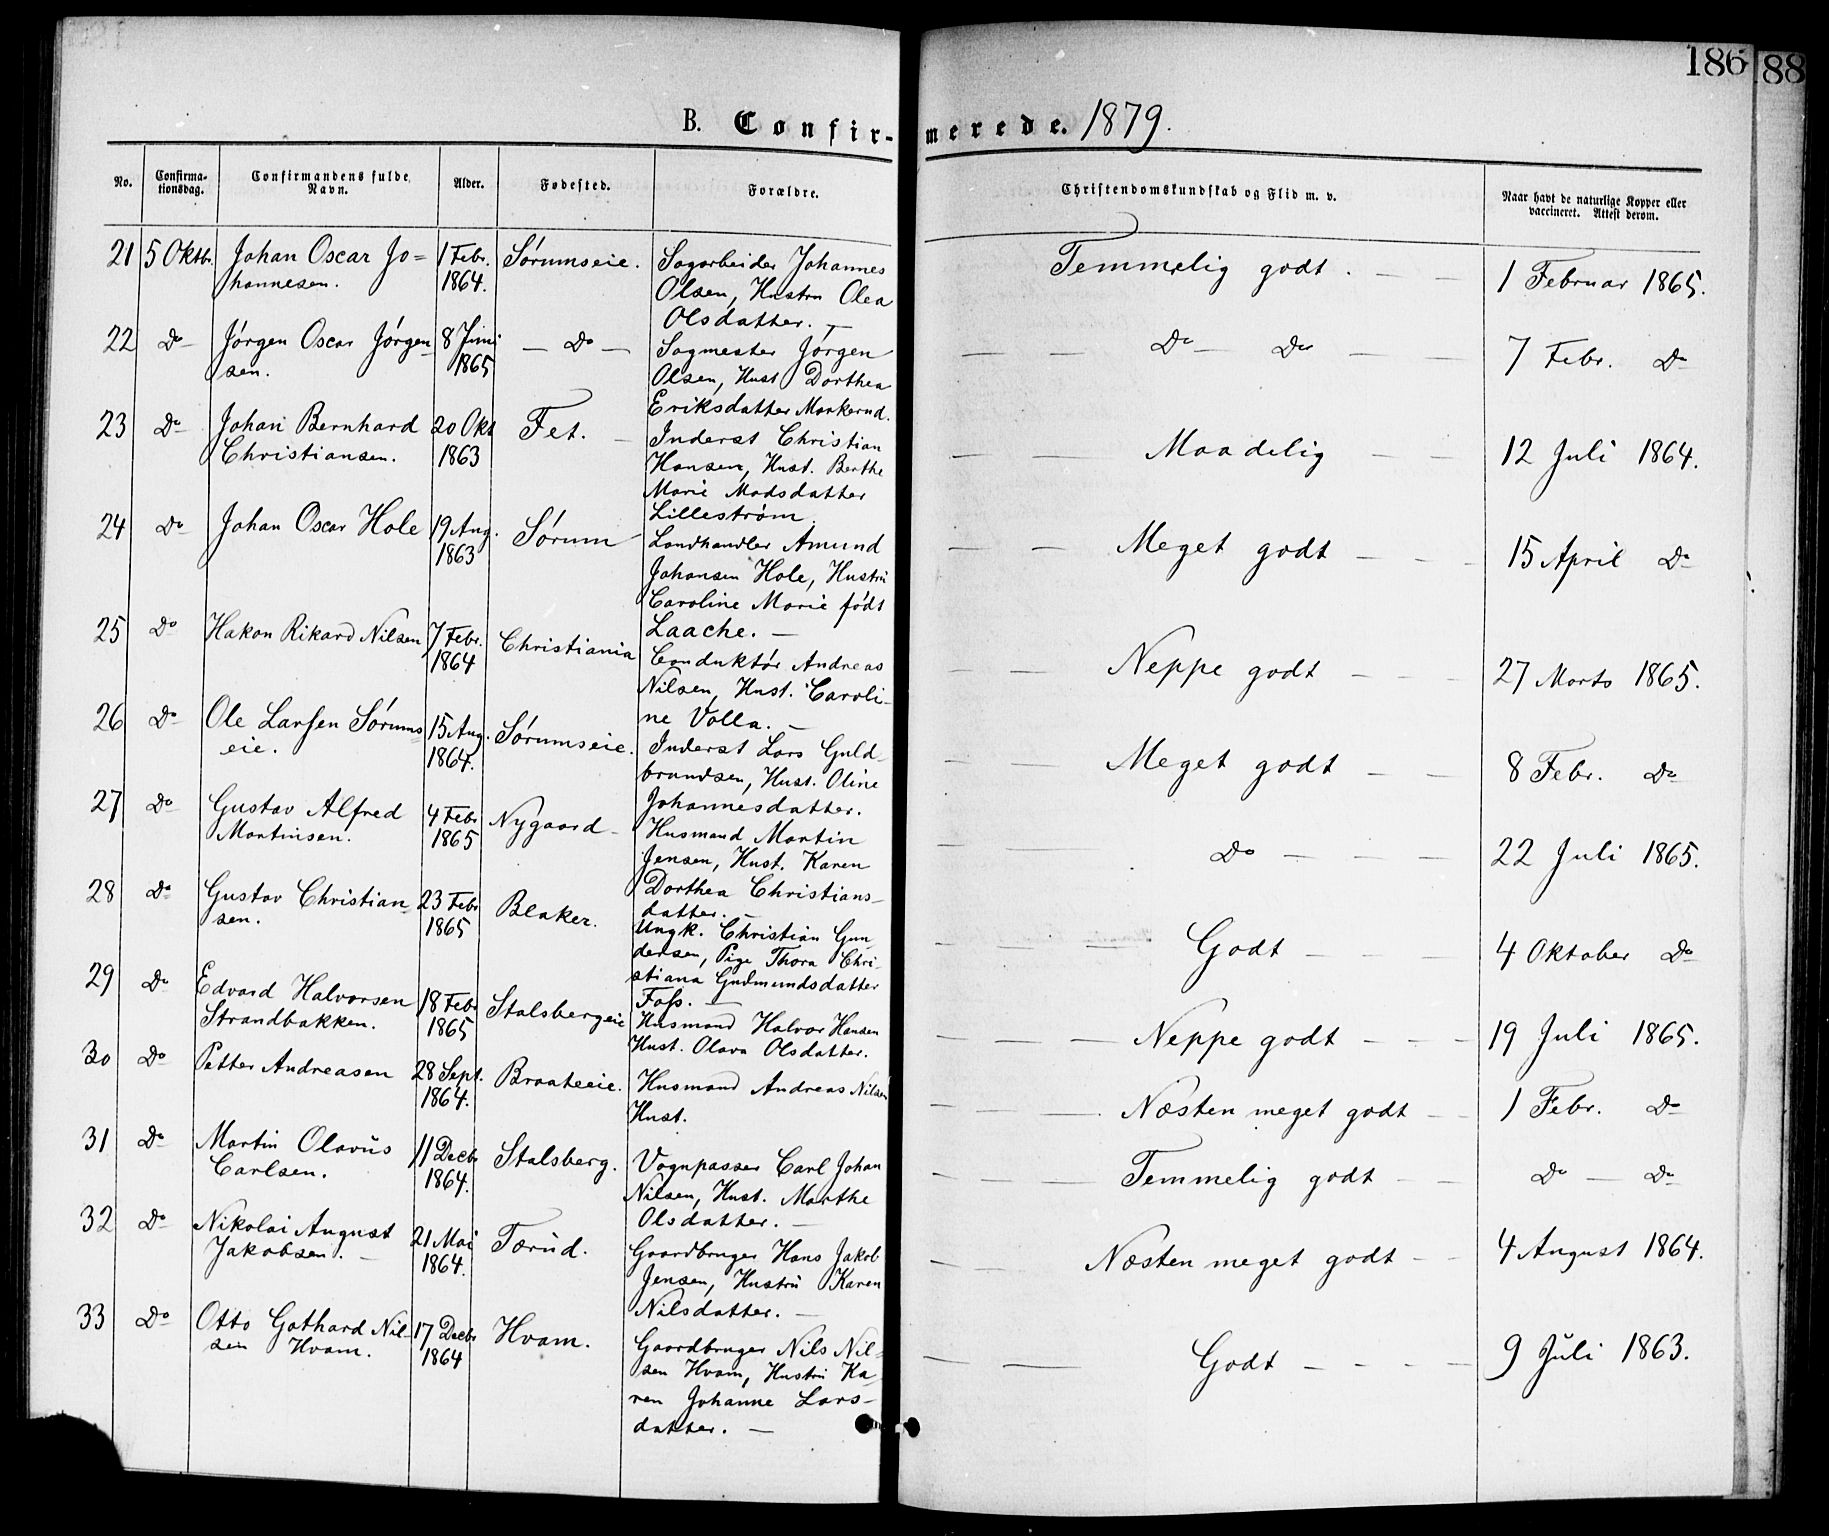 186
88
B. Confirmerede. 1879.
No. Confirmationsdag. Confirmandens fulde Navn. Alder. Fødested. Forældre. Christendomskundskab og Flid m. v. Naar havt de naturlige Kopper eller vaccineret. Attest derom.
21 5 Oktb. Johan Oscar Jo= 1 Febr. Sørumseie. Sagarbeider Johannes Temmelig godt. — — 1 Februar 1865.
hannesen. 1864. Olsen, Hustru Olea
Olsdatter. —
22 Do Jørgen Oscar Jørgen= 8 Juni — Do — Sagmester Jørgen — — Do — Do — — 7 Febr. Do
sen. 1865 Olsen, Hust Dorthea
Eriksdatter Markerud.
23 Do Johan Bernhard 20 Okt Fet. — Inderst Christian — — Maadelig — — 12 Juli 1864.
Christiansen. 1863 Hansen, Hust. Berthe
Marie Madsdatter
Lillestrøm.
24 Do Johan Oscar Hole 19 Aug. Sørum Landhandler Amund — — Meget godt — — 15 April Do
1863 Johansen Hole, Hustru
Caroline Marie født
Laache. —
25 Do Hakon Rikard Nilsen 7 Febr. Christiania Conduktør Andreas — — Neppe godt — — — 27 Marts 1865.
1864 Nilsen, Hust. Caroli-
ne Volla. —
26 Do Ole Larsen Sørums= 15 Aug. Sørumseie. Inderst Lars Guld- — — Meget godt — — 8 Febr. Do
eie. 1864. brandsen, Hust. Oline
Johannesdatter.
27 Do Gustav Alfred 4 Febr Nygaard — Husmand Martin — — Do — — — 22 Juli 1865.
Martinsen. 1865 Jensen, Hust. Karen
Dorthea Christians-
datter. —
28 Do Gustav Christian= 23 Febr Blaker. Ungk. Christian Gun- — — — Godt — — — 4 Oktober Do
sen. 1865 dersen, Pige Thora Chri-
stiana Gudmundsdatter
Foss. —
29 Do Edvard Halvorsen 18 Febr Stalsbergeie Husmand Halvor Hansen — — — Neppe godt — — — 19 Juli 1865.
Strandbakken. 1865 Hust. Olava Olsdatter.
30 Do Petter Andreasen 28 Sept. Braateeie. Husmand Andreas Nilsen — — — Næsten meget godt — — 1 Febr. Do
1864. Hust.
31 Do Martin Olavus 11 Decbr Stalsberg. Vognpasser Carl Johan — — — Temmelig godt — — Do — Do
Carlsen. 1864. Nilsen, Hust. Marthe
Olsdatter. —
32 Do Nikolai August 21 Mai Tærud. Gaardbruger Hans Jakob — — Næsten meget godt — — 4 August 1864.
Jakobsen. — 1864. Jensen, Hustru Karen
Nilsdatter. —
33 Do Otto Gothard Nil- 17 Decbr Hvam. Gaardbruger Nils Nil- — — Godt — — — — 9 Juli 1863.
sen Hvam. 1864 sen Hvam, Hustru Ka-
ren Johanne Lars-
datter. —